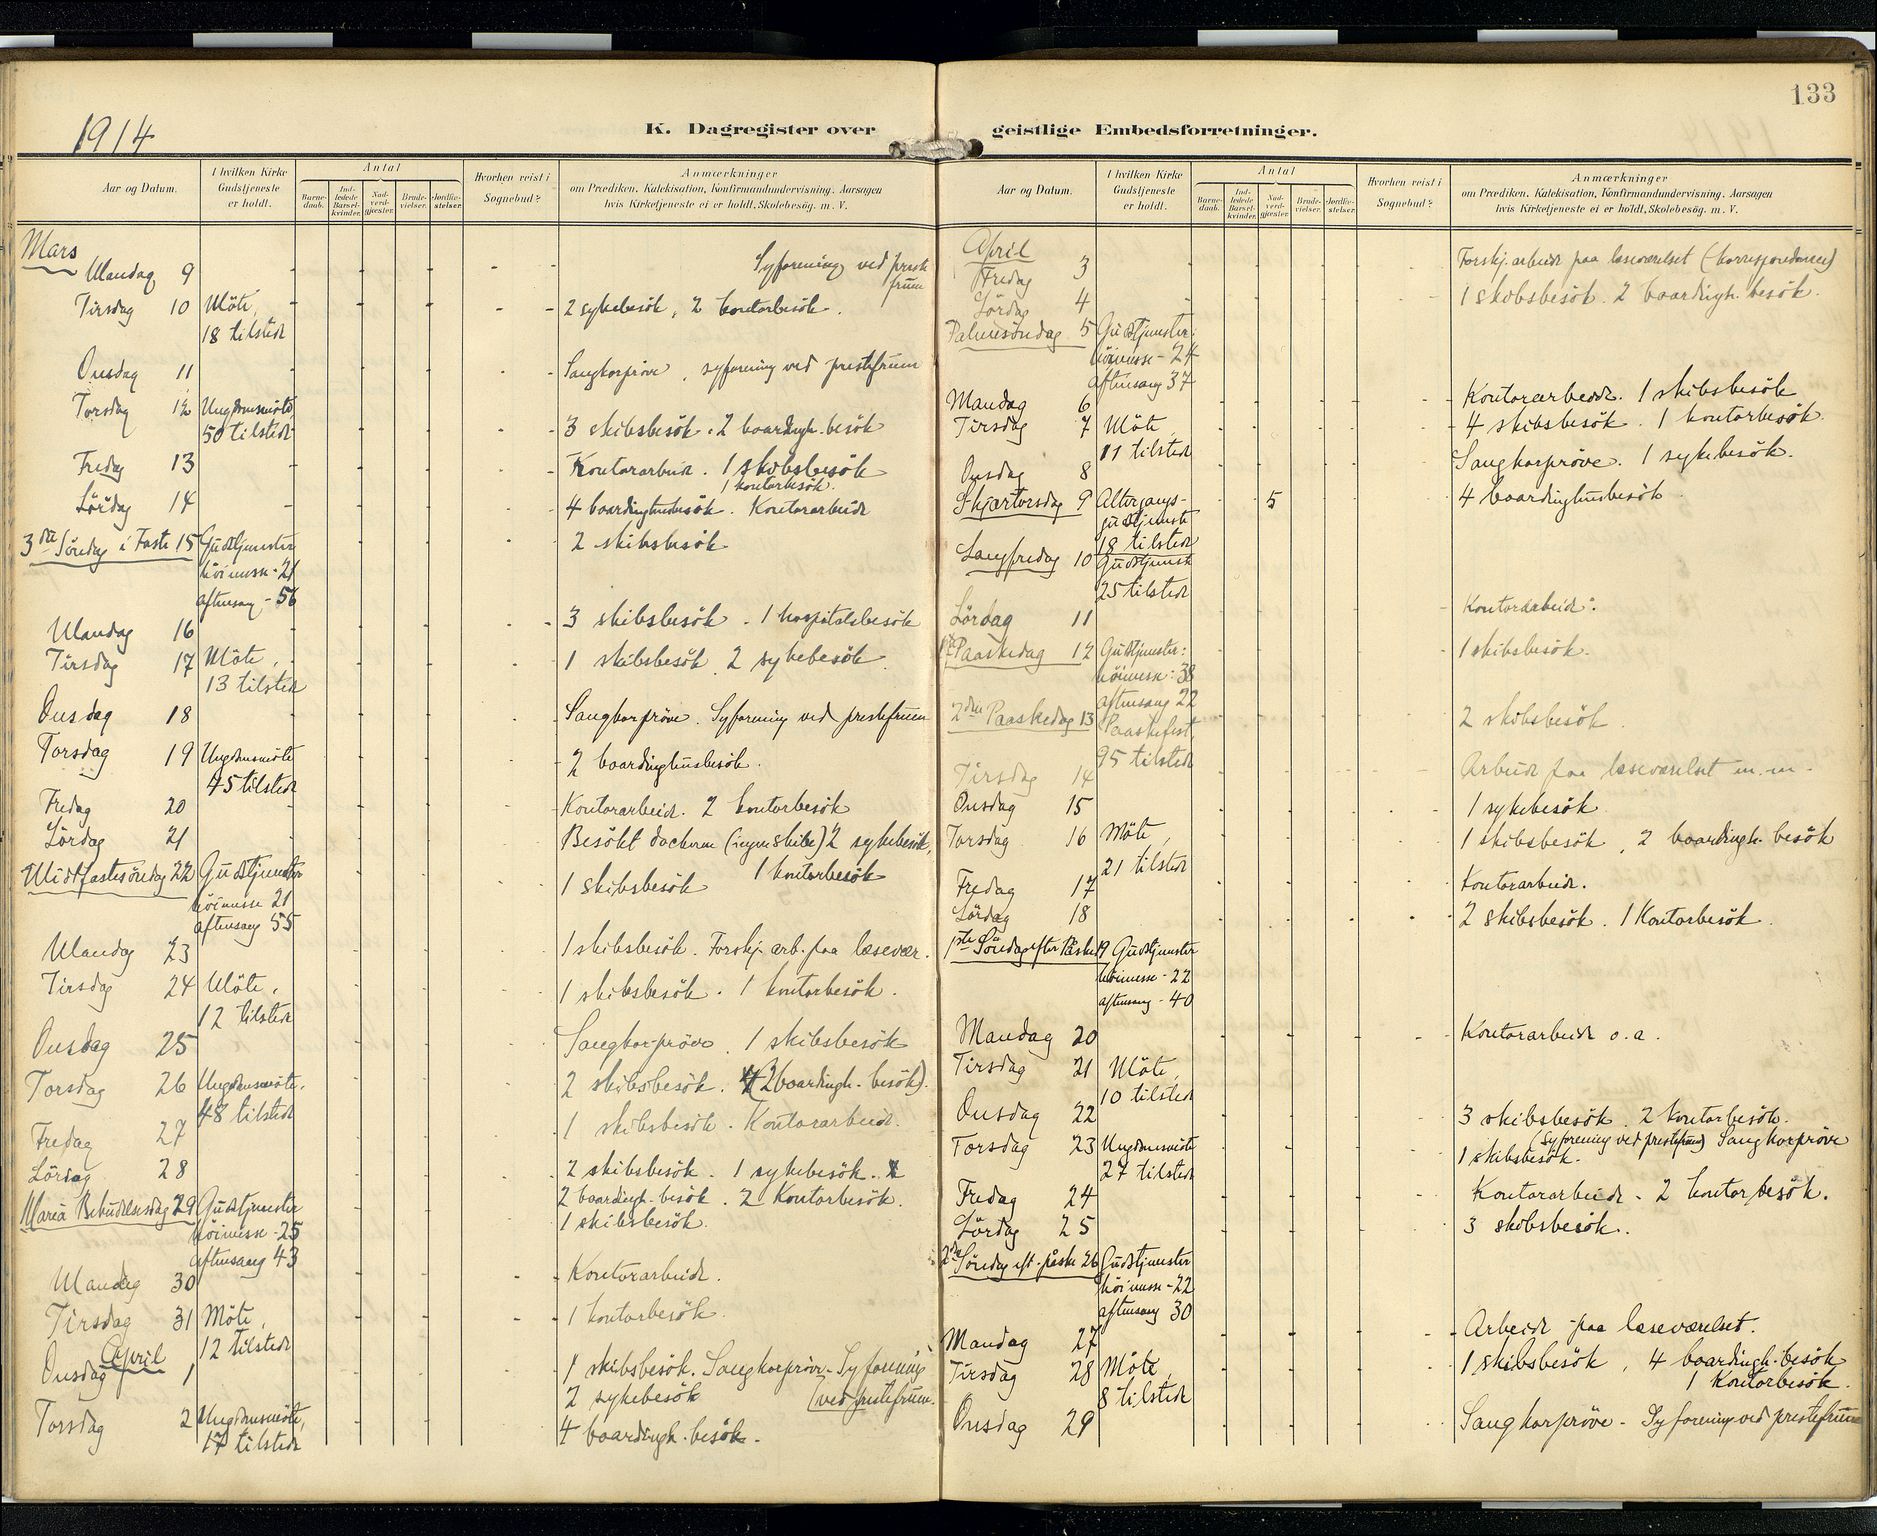 133
1914
K. Dagregister over
geistlige Embedsforretninger.
Aar og Datum.
I hvilken Kirke Gudstjeneste er holdt.
Antal
Barnedaab.
Indledede Barselkvinder.
Nadverdgjæster.
Brudevielser.
Jordfæstelser.
Hvorhen reist i Sognebud?
Anmærkninger
om Prædiken, Katekisation, Konfirmandundervisning, Aarsagen
hvis Kirketjeneste ei er holdt, Skolebesøg, m. V.
Mars
Mandag 9 Syforening ved prest
frum
Tirsdag 10 Möte, 2 sykebesök, 2 kontorbesök.
18 tilstede
Onsdag 11 Sangkorpröve, syforening ved prestefruen
Torsdag 12 Ungdomsmöte 3 skibsbesök. 2 boardingh. besök
50 tilstede
Fredag 13 Kontorarbeide. 1 skibsbesök
1 kontorbesök.
Lördag 14 4 boardinghusbesök. Kontorarbeide
3die Söndag i Faste 15 Gudstjenester 2 skibsbesök
höimesse - 21
aftensang - 56
Mandag 16 3 skibsbesök. 1 hospitalsbesök
Tirsdag 17 Möte, 1 skibsbesök. 2 sykebesök.
13 tilstede
Onsdag 18 Sangkorpröve. Syforening ved prestefruen
Torsdag 19 Ungdomsmöte 2 boardinghusbesök.
45 tilstede
Fredag 20 Kontorarbeide. 2 kontorbesök
Lördag 21 Besökt dockerne (ingen skibe) 2 sykebesök,
1 kontorbesök
Midtfastesöndag 22 Gudstjenester 1 skibsbesök
höimesse 21
aftensang 55
Mandag 23 1 skibsbesök. Forskj. arb. paa læsevær.
Tirsdag 24 Möte, 1 skibsbesök. 1 kontorbesök.
12 tilstede
Onsdag 25 Sangkorpröve. 1 skibsbesök
Torsdag 26 Ungdomsmöte. 2 skibsbesök. (2 boardingh. besök).
48 tilstede
Fredag 27 1 skibsbesök. Kontorarbeide.
Lördag 28 2 skibsbesök. 1 sykebesök.
2 boardingh. besök. 2 Kontorbesök.
Mariæ Bebudelsesdag 29 Gudstjenester 1 skibsbesök.
höimesse - 25
aftensang 43
Mandag 30 Kontorarbeide.
Tirsdag 31 Möte, 1 kontorbesök.
12 tilstede
April
Onsdag 1 1 skibsbesök. Sangkorpröve. Syforening
2 sykebesök (ved prestefruen.
Torsdag 2 Ungdomsmöte, 4 boardingh. besök.
17 tilstede
Aar og Datum.
I hvilken Kirke Gudstjeneste er holdt.
Antal
Barnedaab.
Indledede Barselkvinder.
Nadverdgjæster.
Brudevielser.
Jordfæstelser.
Hvorhen reist i Sognebud?
Anmærkninger
om Prædiken, Katekisation, Konfirmandundervisning, Aarsagen
hvis Kirketjeneste ei er holdt, Skolebesög, m. V.
April
Fredag 3 Forskj. arbeide paa læseværelset (korrespondanse)
Lördag 4 1 skibsbesök. 2 boardingh. besök.
Palmesöndag 5 Gudstjenester:
höimesse - 24
aftensang 37
Mandag 6 Kontorarbeide. 1 skibsbesök
Tirsdag 7 Möte, 4 skibsbesök. 1 kontorbesök.
11 tilstede
Onsdag 8 Sangkorpröve. 1 sykebesök.
Skjærtorsdag 9 Altergangs- 5 4 boardinghusbesök
gudstjeneste
18 tilstede
Langfredag 10 Gudstjeneste
25 tilstede
Lördag 11 Kontorarbeide.
1ste Paaskedag 12 Gudstjenester: 1 skibsbesök.
höimesse: 38
aftensang 22
2den Paaskedag 13 Paaskefest, 2 skibsbesök.
95 tilstede
Tirsdag 14 Arbeide paa læseværelset m. m.
Onsdag 15 1 sykebesök.
Torsdag 16 Möte, 1 skibsbesök, 2 boardingh. besök
21 tilstede
Fredag 17 Kontorarbeide.
Lördag 18 2 skibsbesök. 1 Kontorbesök.
1ste Söndag efter Påske 19 Gudstjenester
höimesse - 22
aftensang - 40
Mandag 20 Kontorarbeide o. a.
Tirsdag 21 Möte,
10 tilstede
Onsdag 22 3 skibsbesök. 2 kontorbesök.
(Syforening ved prestefruen) Sangkorpröve
Torsdag 23 Ungdomsmöte 1 skibsbesök.
27 tilstede
Fredag 24 Kontorarbeide. 2 kontorbesök.
Lördag 25 3 skibsbesök.
2den Söndag eft. påske 26 Gudstjenester
höimesse - 22
aftensang 30
Mandag 27 Arbeide paa læseværelset.
Tirsdag 28 Möte, 1 skibsbesök, 4 boardingh. besök
8 tilstede 1 Kontorbesök.
Onsdag 29 Sangkorpröve - Syforening ved prestefruen